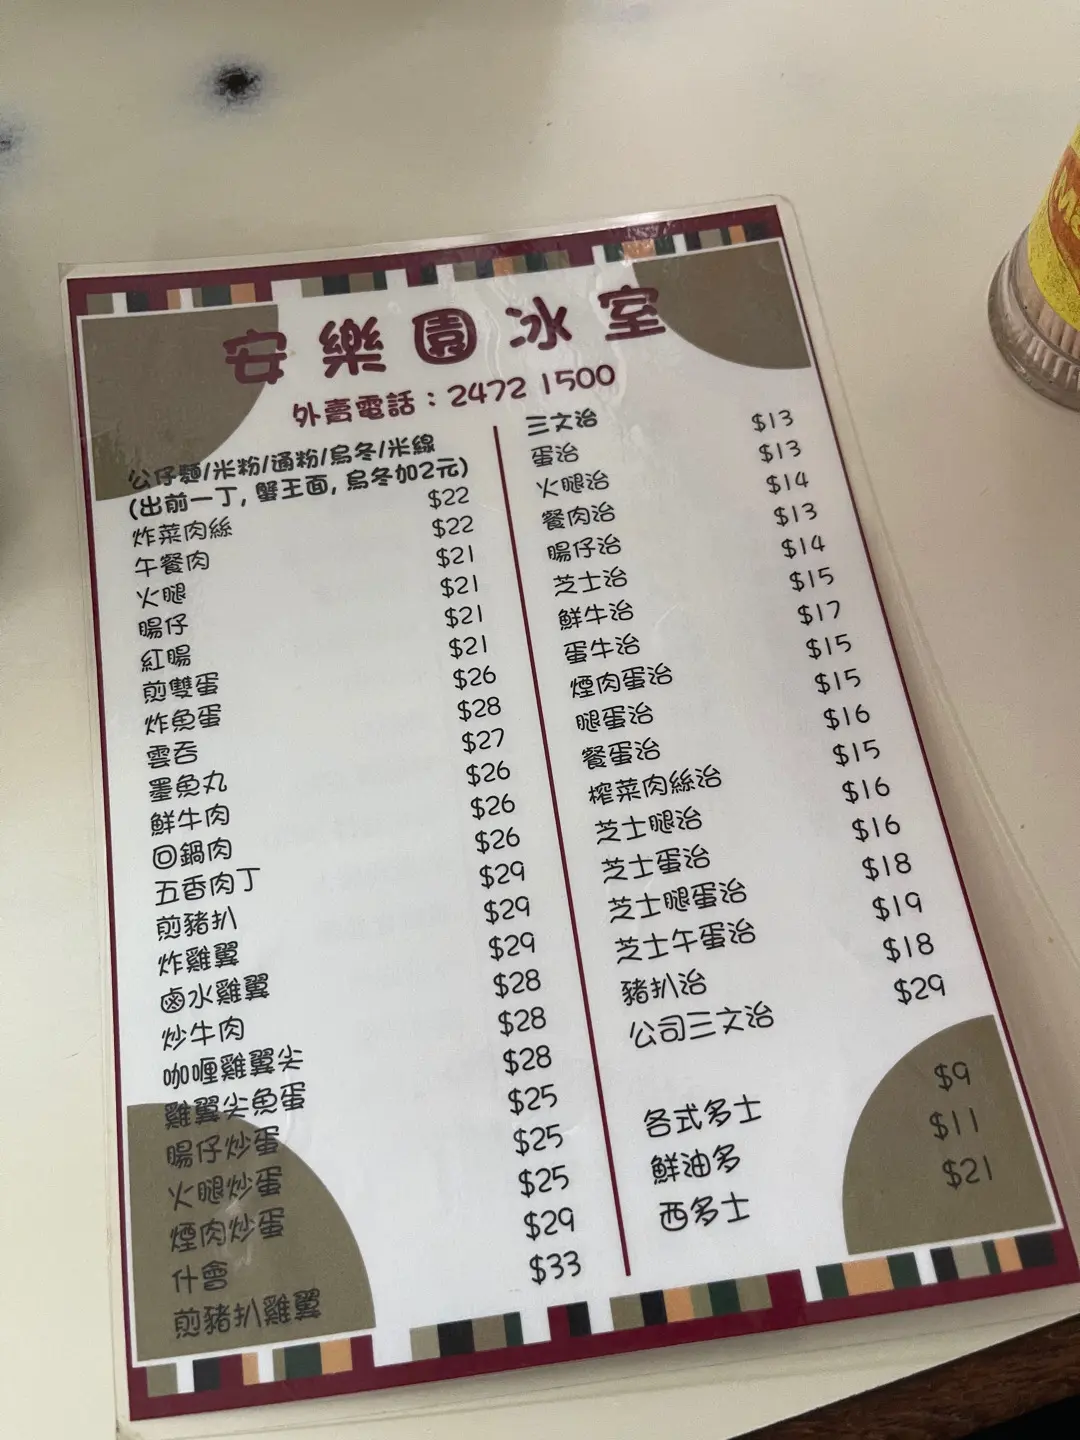 安樂園冰室
外賣電話：2472 1500
公仔麵/米粉/通粉/烏冬/米線
(出前一丁, 蟹王面, 烏冬加2元)
炸菜肉絲 $22
午餐肉 $22
火腿 $21
腸仔 $21
紅腸 $21
煎雙蛋 $21
炸魚蛋 $26
雲吞 $28
墨魚丸 $27
鮮牛肉 $26
回鍋肉 $26
五香肉丁 $26
煎豬扒 $29
炸雞翼 $29
鹵水雞翼 $29
炒牛肉 $28
咖喱雞翼尖 $28
雞翼尖魚蛋 $28
腸仔炒蛋 $25
火腿炒蛋 $25
煙肉炒蛋 $25
什會 $29
煎豬扒雞翼 $33
三文治
蛋治 $13
火腿治 $13
餐肉治 $14
腸仔治 $13
芝士治 $14
鮮牛治 $15
蛋牛治 $17
煙肉蛋治 $15
腿蛋治 $15
餐蛋治 $16
榨菜肉絲治 $15
芝士腿治 $16
芝士蛋治 $16
芝士腿蛋治 $18
芝士午蛋治 $19
豬扒治 $18
公司三文治 $29
各式多士 $9
鮮油多 $11
西多士 $21